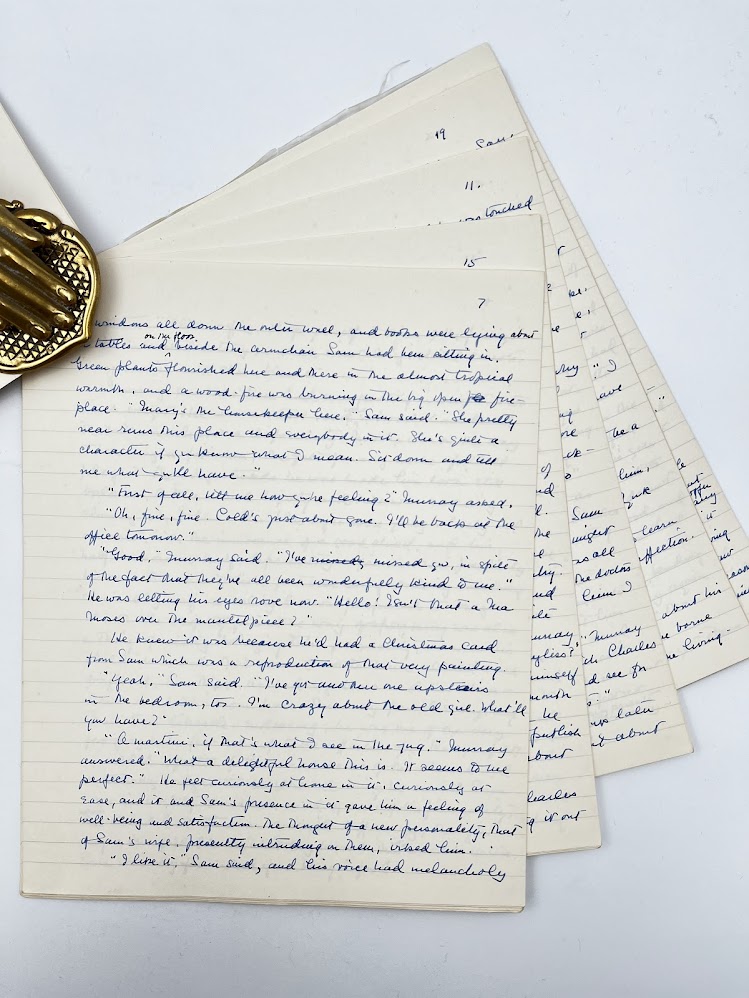 19
Sam.
11.
touched
15
7
windows all down the outer wall, and books were lying about
on the floor
tables and ^ beside the armchair Sam had been sitting in.
Green plants flourished here and there in the almost tropical
warmth, and a wood-fire was burning in the big open fire-
place. "Mary's the housekeeper here," Sam said. "She pretty
near runs this place and everybody in it. She's quite a
character if you know what I mean. Sit down and tell
me what you'll have."
"First of all, tell me how you're feeling?" Murray asked.
"Oh, fine, fine. Cold's just about gone. I'll be back at the
office tomorrow."
"Good," Murray said. "I've missed you, in spite
of the fact that they've all been wonderfully kind to me."
He was letting his eyes rove now. "Hello! Isn't that a Ma
Moses over the mantelpiece?"
He knew it was because he'd had a Christmas card
from Sam which was a reproduction of that very painting.
"Yeah," Sam said. "I've got another one upstairs
in the bedroom, too. I'm crazy about the old girl. What'll
you have?"
"A martini, if that's what I see in the jug." Murray
answered. "What a delightful house this is. It seems to me
perfect." He felt curiously at home in it, curiously at
ease, and it and Sam's presence in it gave him a feeling of
well-being and satisfaction. The thought of a new personality, that
of Sam's wife, presently intruding on them, irked him.
"I like it," Sam said, and his voice had melancholy
publish
about
Charles
g it out
Sam
aught
as all
the doctor
him I
"Murray
Charles
d see for
him,
learn
affection.
about his
borne
living-
later
about